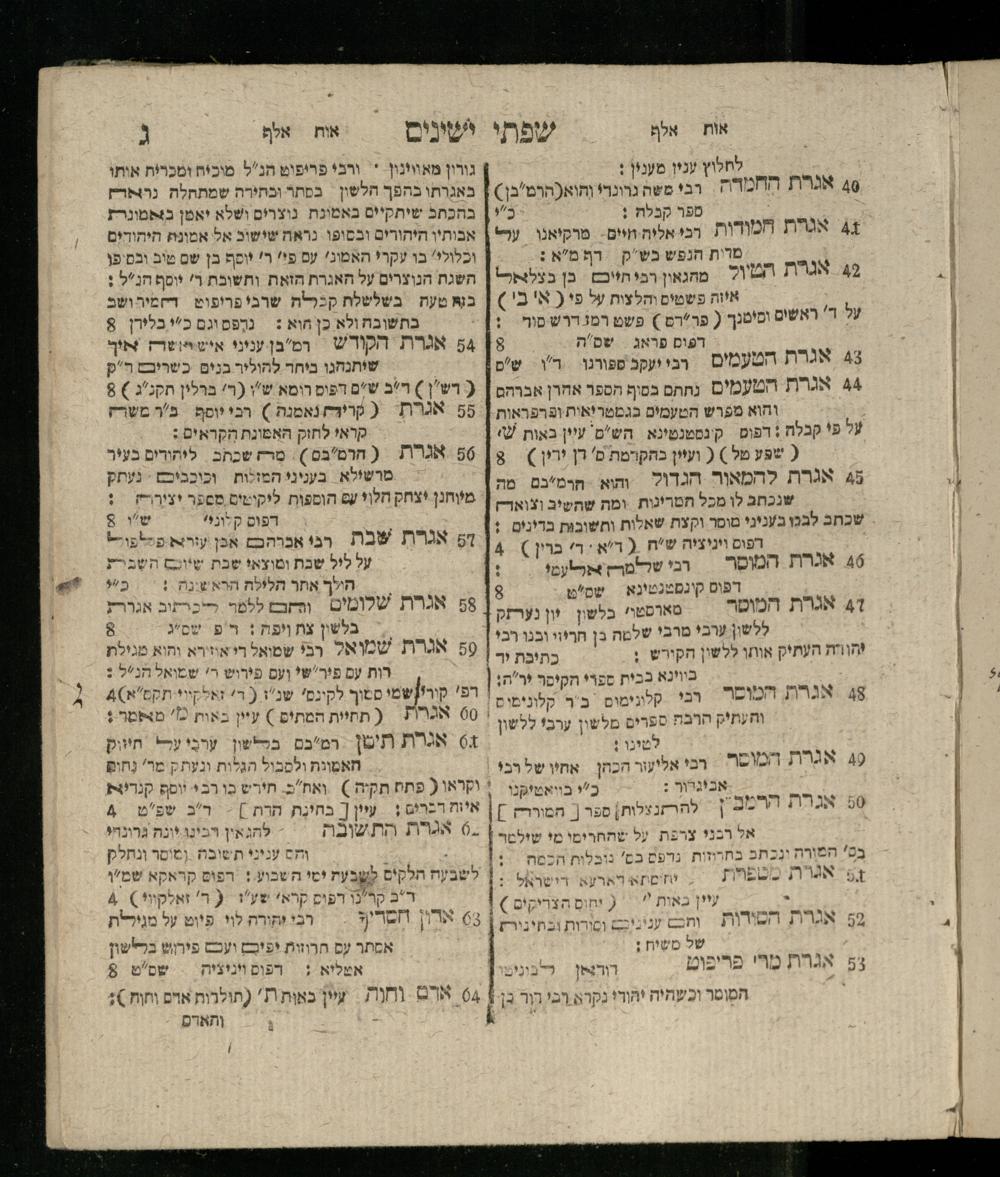 אות אלף שפתי ישינים אות אלף ג
לחלוץ ענין מענין :
40 אגרת החמדה רבי משה גרונדי והוא (הרמ״בן)
ספר קבלה : כ״י
41 אגרת חמודות רבי אליה חיים מרקיאנו על
מדות הנפש בש״ק דף מ״א :
42 אגרת הטיול מהגאון רבי חיים בן בצלאל
איזה פשטים והלצות על פי ( א׳ ב׳ )
על ד׳ ראשים וסימנך ( פר״דס ) פשט רמז דרש סוד :
דפוס פראג שס״ה 8
43 אגרת הטעמים רבי יעקב ספורנו ד״ו ש״ס
44 אגרת הטעמים נחתם בסוף הספר אהרן אברהם
והוא מפרש הטעמים בגמטריאות ופרפראות
על פי קבלה : דפוס קונסטנטינא הש״ס עיין באות ש׳
( שפע טל ) ( ועיין בהקדמת ס׳ דן ידין ) 8
45 אגרת להמאור הגדול והוא הרמ״בם מה
שנכתב לו מכל המדינות ומה שהשיב וצואה
שכתב לבנו בעניני מוסר וקצת שאלות ותשובות בדינים :
דפוס ויניציה ש״ח ( ד״א ד׳ ברין ) 4
46 אגרת המוסר רבי שלמה אלעמי :
דפוס קונסטנטינא שס״ט 8
47 אגרת המוסר מארסטו׳ בלשון יון נעתק
ללשון ערבי מרבי שלמה בן חריזי ובנו רבי
יהודה העתיק אותו ללשון הקודש : כתיבת יד
בווינא בבית ספרי הקיסר יר״ה :
48 אגרת המוסר רבי קלונימוס ב״ר קלונימוס
והעתיק הרבה ספרים מלשון ערבי ללשון
לטינו :
49 אגרת המוסר רבי אליעזר הכהן אחיו של רבי
אביגדור : כ״י בוואטיקנו
50 אגרת הרמב״ן להתנצלות ספר [ המורה ]
אל רבני צרפת על שהחרימו מי שילמד
בס׳ המורה ונכתב בחרוזת נדפס בס׳ נובלות חכמה :
51 אגרת מספרת יחסתא דארעא דישראל :
עיין באות י׳ ( יחוס הצדיקים )
52 אגרת הסודות והם ענינים וסודות ובחינות
של משיח :
53 אגרת מרי פריפוט דוראן לבוניטו
המומר וכשהיה יהודי נקרא רבי דוד בן
גורון מאווינון ורבי פריפוט הנ״ל מוכיח ומכריח אותו
באגרתו בהפך הלשון בסתר ובחידה שמתחלה נראה
בהכתב שיתקיים באמונת נוצרים ושלא יאמן באמונת
אבותיו היהודים ובסופו נראה שישוב אל אמונת היהודים
וכלולי׳ בו עקרי האמונ׳ עם פי׳ ר׳ יוסף בן שם טוב ובסופו
השגת הנוצרים על האגרת הזאת ותשובת ר׳ יוסף הנ״ל :
בזה טעה בשלשלת קבלה שרבי פריפוט המיר ושב
בתשובה ולא כן הוא : נדפס וגם כ״י בלידן 8
54 אגרת הקודש רמ״בן עניני איש ואשה איך
שיתנהגו ביחד להוליד בנים כשרים ד״ק
( דש״ן ) ד״ב ש״ם דפוס רומא ש״ו ( ד׳ ברלין תקנ״ג ) 8
55 אגרת ( קריה נאמנה ) רבי יוסף ב״ר משה
קראי לחזק האמונת הקראים :
56 אגרת ( הרמ״בם ) מה שכתב ליהודים בעיר
מרשילא בעניני המזלות וכוכבים נעתק
מיוחנן יצחק הלוי עם הוספות ליקוטים מספר יצירה :
דפוס קלוני׳ ש״ו 8
57 אגרת שבת רבי אברהם אבן עזרא פלפול
על ליל שבת ומוצאי שבת שיום השבת
הולך אחר הלילה הראשונה : כ״י
58 אגרת שלומים והם ללמד לכתוב אגרת
בלשון צח ויפה : ד״פ שס״ג 8
59 אגרת שמואל רבי שמואל די אוזידא והוא מגילת
רות עם פיר״שי ועם פירוש ר׳ שמואל הנ״ל :
דפ׳ קורי שמי סמוך לקינס׳ שנ״ז ( ד׳ זאלקווי תקס״א ) 4
60 אגרת ( תחיית המתים ) עיין באות מ׳ מאמר :
61 אגרת תימן רמ״בם בלשון ערבי על חיזוק
האמונה ולסבול הגלות ונעתק מר׳ נחום
וקראו ( פתח תקיה ) ואח״כ חידש בו רבי יוסף קנדיא
איזה דברים : עיין [ בחינת הדת ] ד״ב שפ״ט 4
62 אגרת התשובה להגאון רבינו יונה גרונדי
והם עניני תשובה ומוסר ונחלק
לשבעה חלקים לשבעת ימי השבוע : דפוס קראקא שמ״ו
ד״ב קר״נו דפוס קרא׳ שע״ז ( ד׳ זאלקווי ) 4
63 אדון חסדיך רבי יהודה לוי פיוט על מגילת
אסתר עם חרוזות יפים ועם פירוש בלשון
אטליא : דפוס ויניציה שס״ט 8
64 אדם וחוה עיין באות ת׳ (תולדות אדם וחוה) :
והאדם